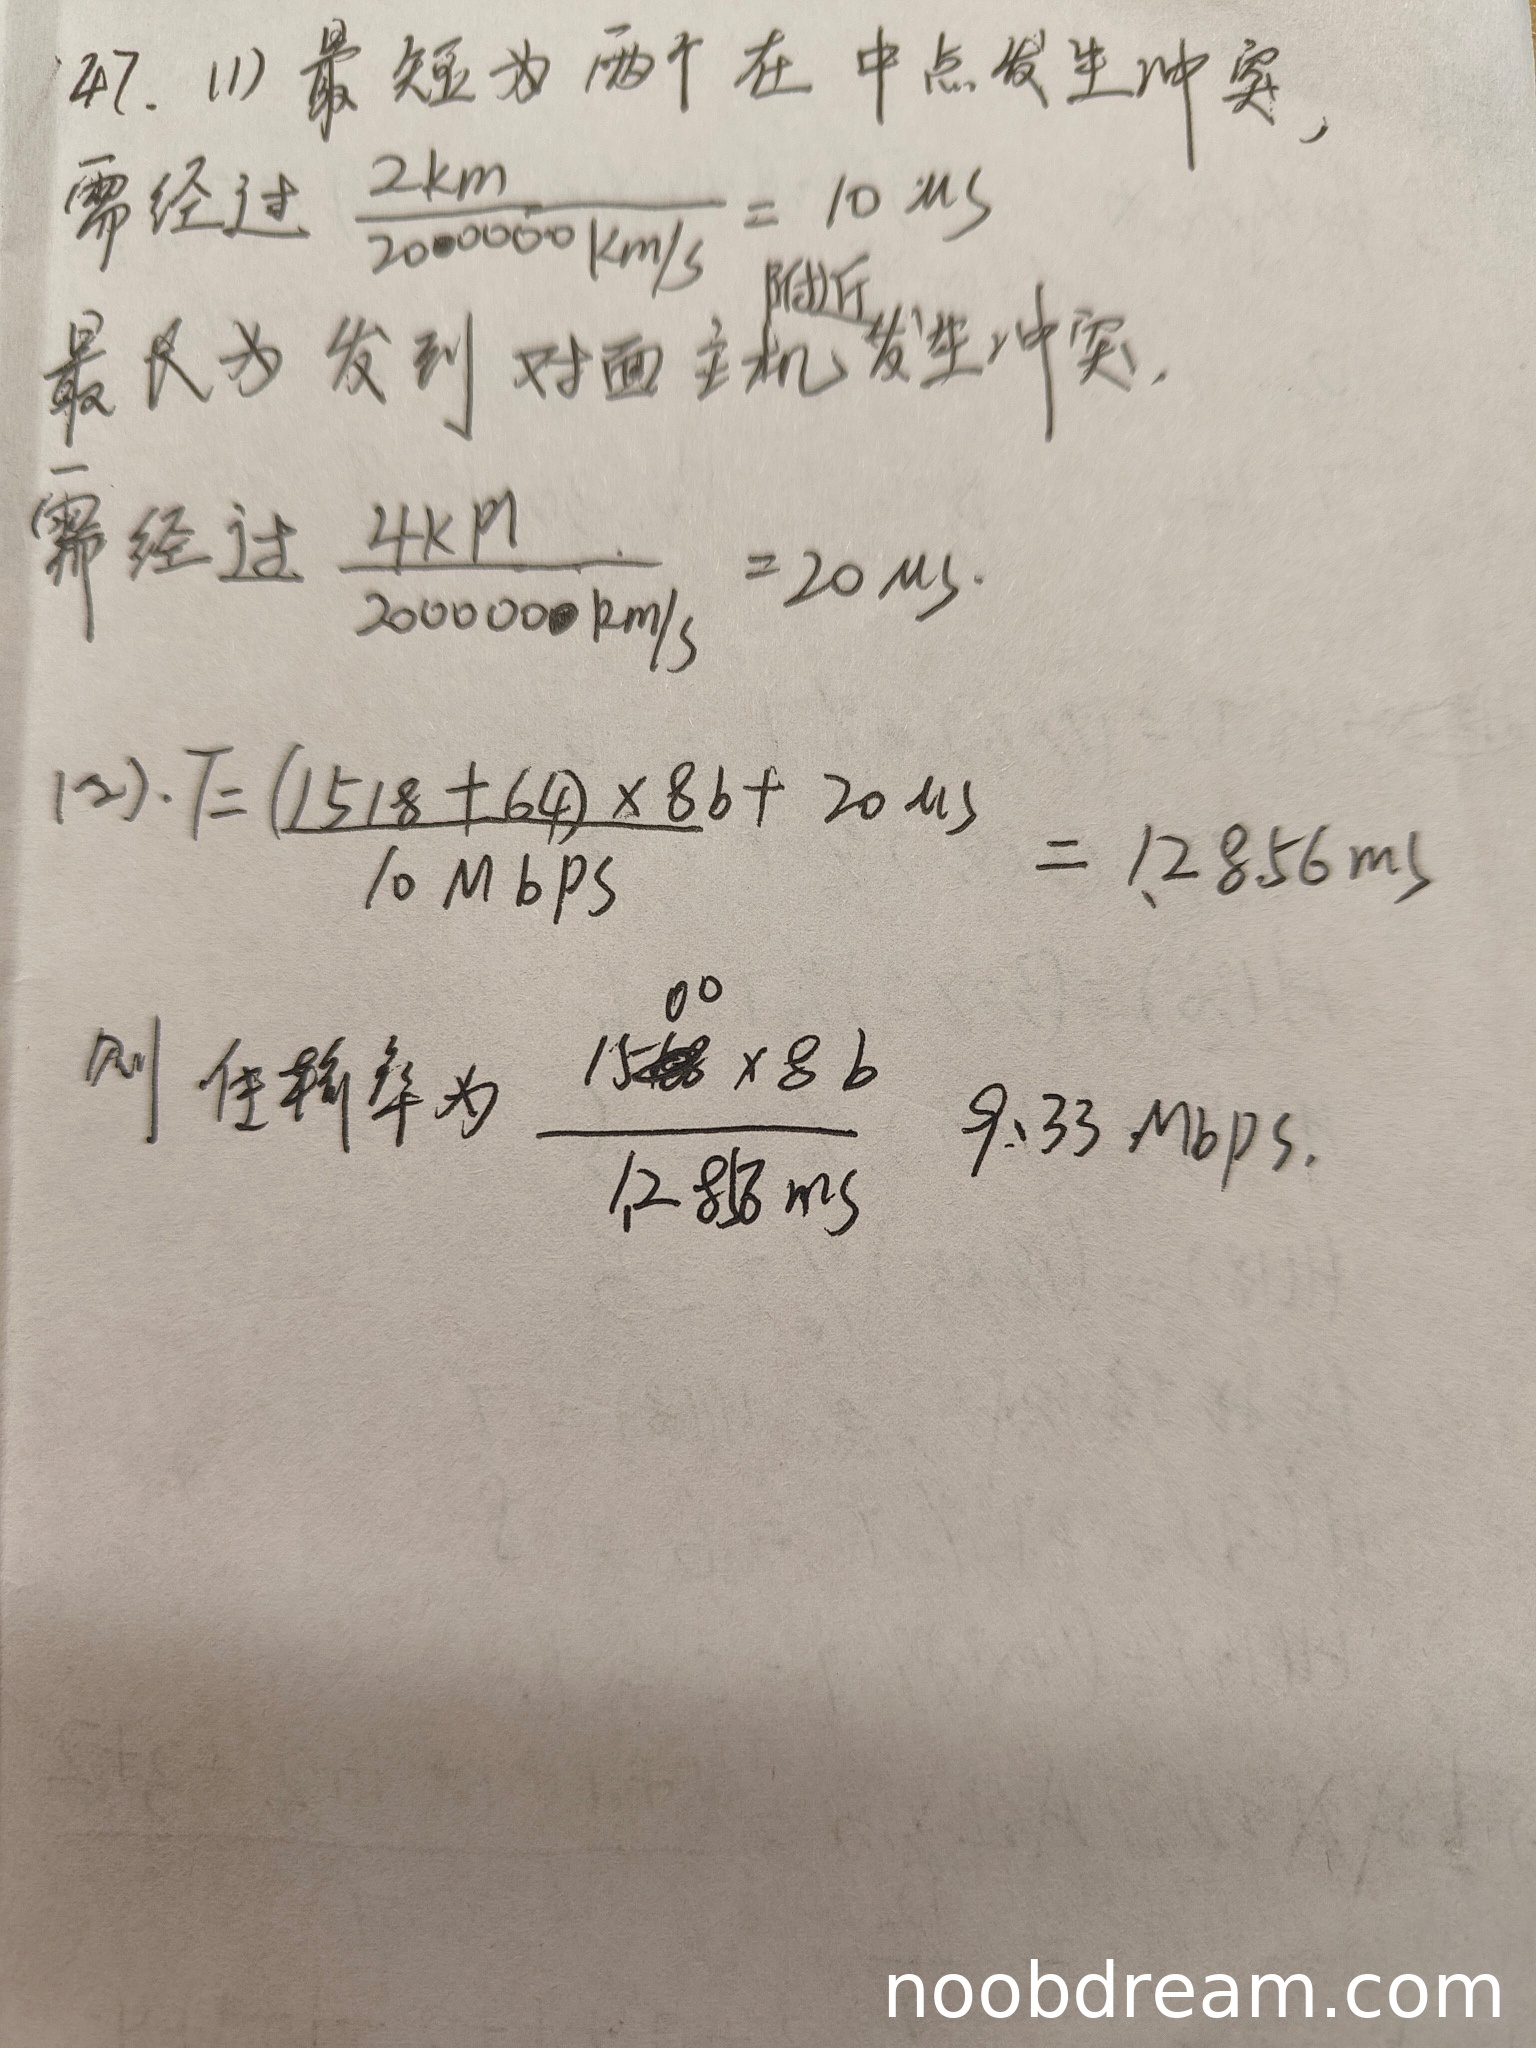 47. (1) 最短为两个在中点发生冲突,
需经过 2km / 200000km/s = 10 μs
最长为发到对面主机附近发生冲突.
需经过 4km / 200000km/s = 20 μs.
(2). T = (1518 + 64) × 8b / 10 Mbps + 20 μs = 1.2856 ms
则传输率为 1500 × 8b / 1.2856 ms 9.33 Mbps.
noobdream.com